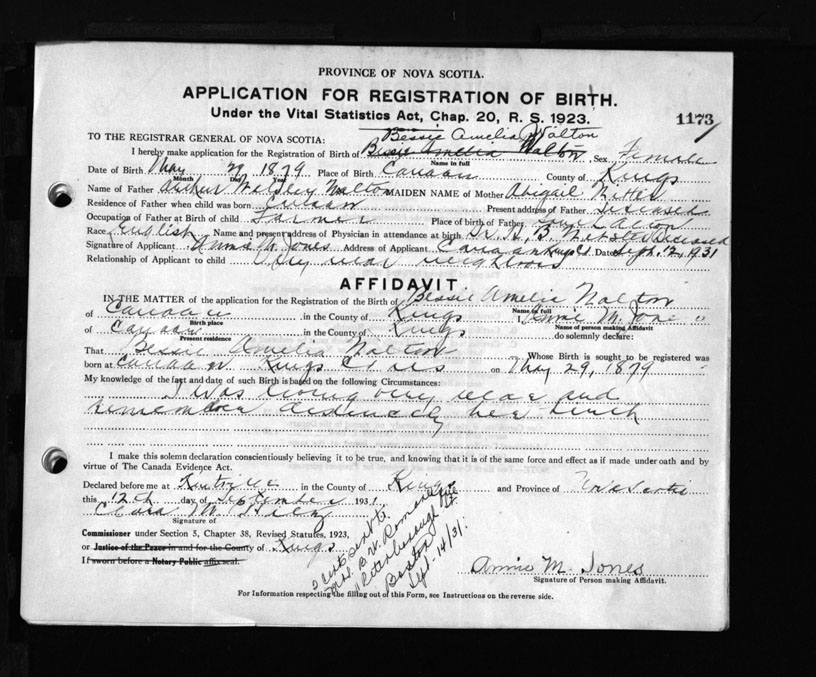 PROVINCE OF NOVA SCOTIA.
APPLICATION FOR REGISTRATION OF BIRTH.
Under the Vital Statistics Act, Chap. 20, R. S. 1923.
1173
Bessie Amelia Walton
TO THE REGISTRAR GENERAL OF NOVA SCOTIA:
I hereby make application for the Registration of Birth of Bessie Amelia Walton Sex Female
Name in full
Date of Birth May 29 1879 Place of Birth Canaan County of Kings
Month Day Year
Name of Father Arthur Walton MAIDEN NAME of Mother Abigail
Residence of Father when child was born Canaan Present address of Father deceased
Occupation of Father at Birth of child Farmer Place of birth of Father
Race English Name and present address of Physician in attendance at birth Dr. H. B. deceased
Signature of Applicant Annie M. Jones Address of Applicant Canaan Kings Co. Dated Sept. 12, 1931
Relationship of Applicant to child Very near neighbours
AFFIDAVIT.
IN THE MATTER of the application for the Registration of the Birth of Bessie Amelia Walton
Name in full
of Canaan in the County of Kings I, Annie M. Jones
Birth place
Name of person making Affidavit
of Canaan in the County of Kings do solemnly declare:
Present residence
That Bessie Amelia Walton Whose Birth is sought to be registered was
born at Canaan Kings Co NS on May 29, 1879
My knowledge of the fact and date of such Birth is based on the following Circumstances:
I was living very near and
remember distinctly her birth
I make this solemn declaration conscientiously believing it to be true, and knowing that it is of the same force and effect as if made under oath and by
virtue of The Canada Evidence Act.
Declared before me at Kentville in the County of Kings and Province of Nova Scotia
this 12th day of September 1931
Clara M.
Signature of
Commissioner under Section 5, Chapter 38, Revised Statutes, 1923,
or Justice of the Peace in and for the County of Kings
If sworn before a Notary Public affix seal.
Mrs. B. W.
Peterborough St
Boston
Sept. 14/31.
Annie M. Jones
Signature of Person making Affidavit.
For Information respecting the filling out of this Form, see Instructions on the reverse side.